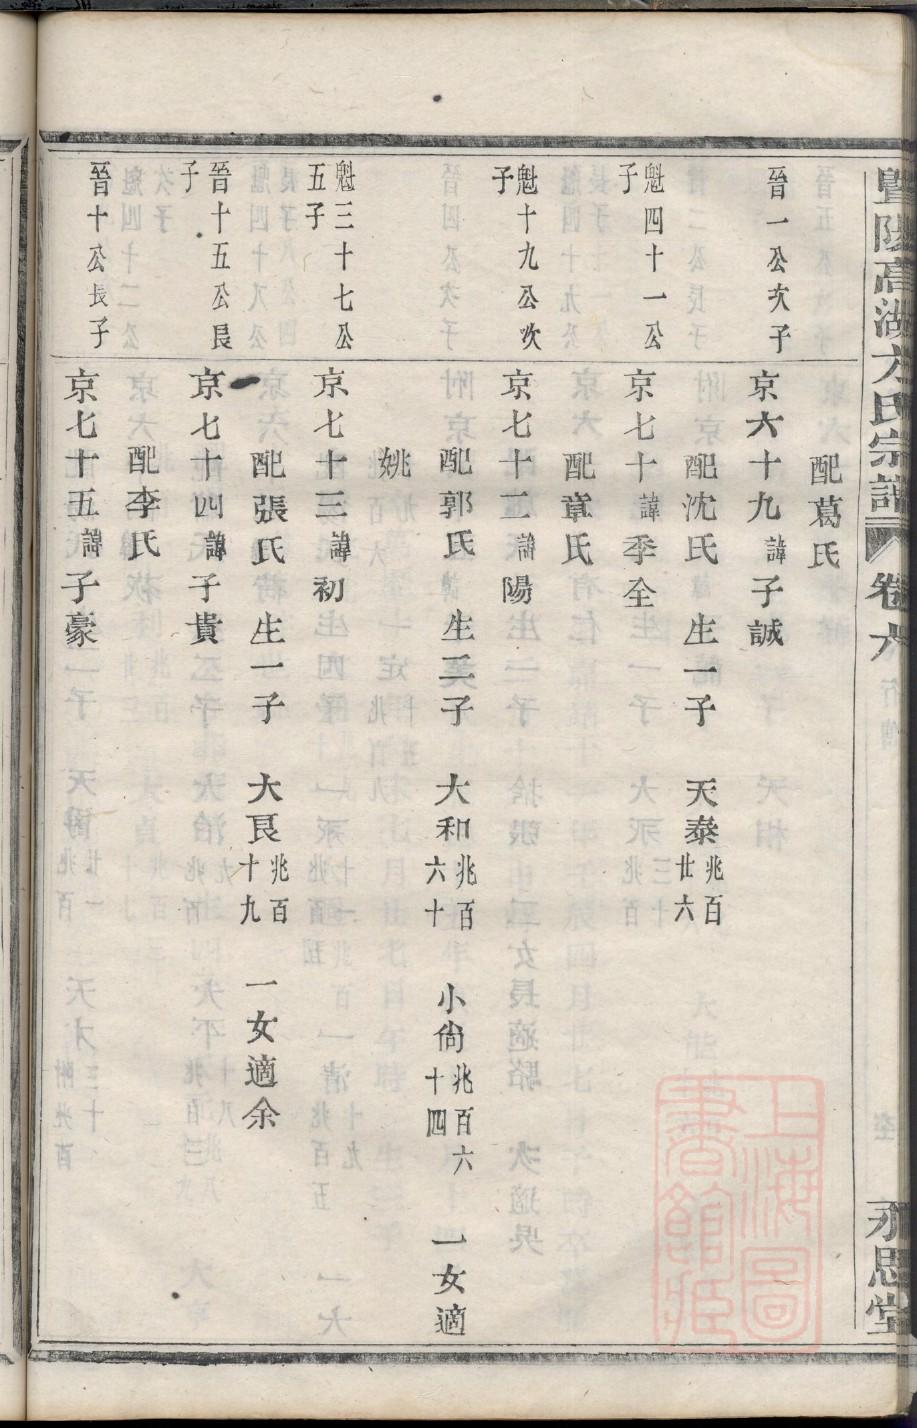 暨陽高湖方氏宗譜 卷六 永思堂
配葛氏
晉一公次子
京六十九諱子誠
配沈氏 生一子 天泰兆百廿六
魁四十一公子
京七十諱季全
配章氏
魁十九公次子
京七十二諱陽
配郭氏 生二子 大和兆百六十 小尙兆百六十四 一女適
姚
魁三十七公五子
京七十三諱初
配張氏 生一子 大艮兆百十九 一女適余
晉十五公長子
京七十四諱子貴
配李氏
晉十公長子
京七十五諱子豪
上海圖書館藏